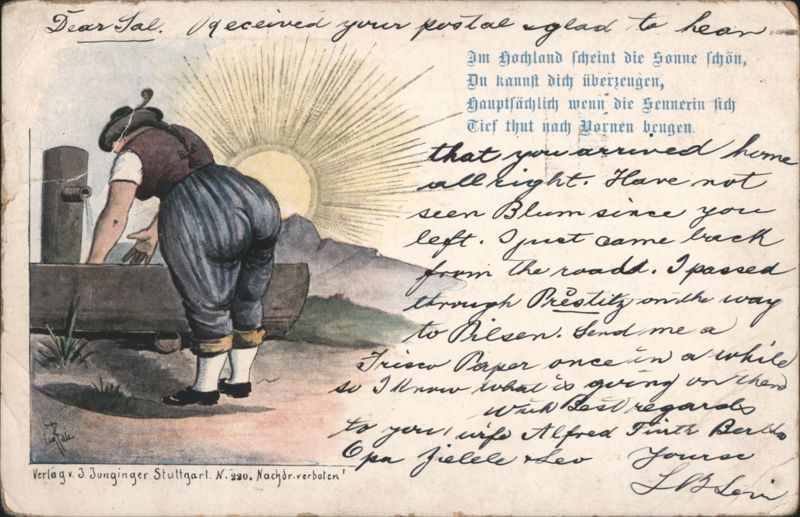 Dear Sal. Received your postal & glad to hear
Im Hochland scheint die Sonne schön,
Du kannst dich überzeugen,
Hauptsächlich wenn die Sennerin sich
Tief thut nach Vornen beugen.
that you arrived home
all right. Have not
seen Blum since you
left. I just came back
from the roadt. I passed
through Prestitz on the way
to Pilsen. Send me a
Frisco Paper once in a while
so I know what is going on there
with Best regards
to you, wife Alfred Fürth
Opa & Leo Yourse
L B Levi
Verlag v. J. Junginger Stuttgart. N. 220. Nachdr. verboten!